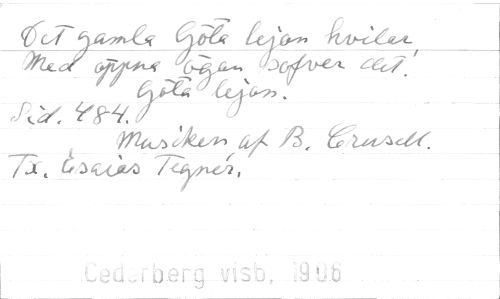 Det gamla Göta lejon hvilar,
Med öppna ögon sofver det.
Göta lejon.
Sid. 484.
Musiken af B. Crusell.
Tx. Esaias Tegnér.
Cederberg visb, 1906